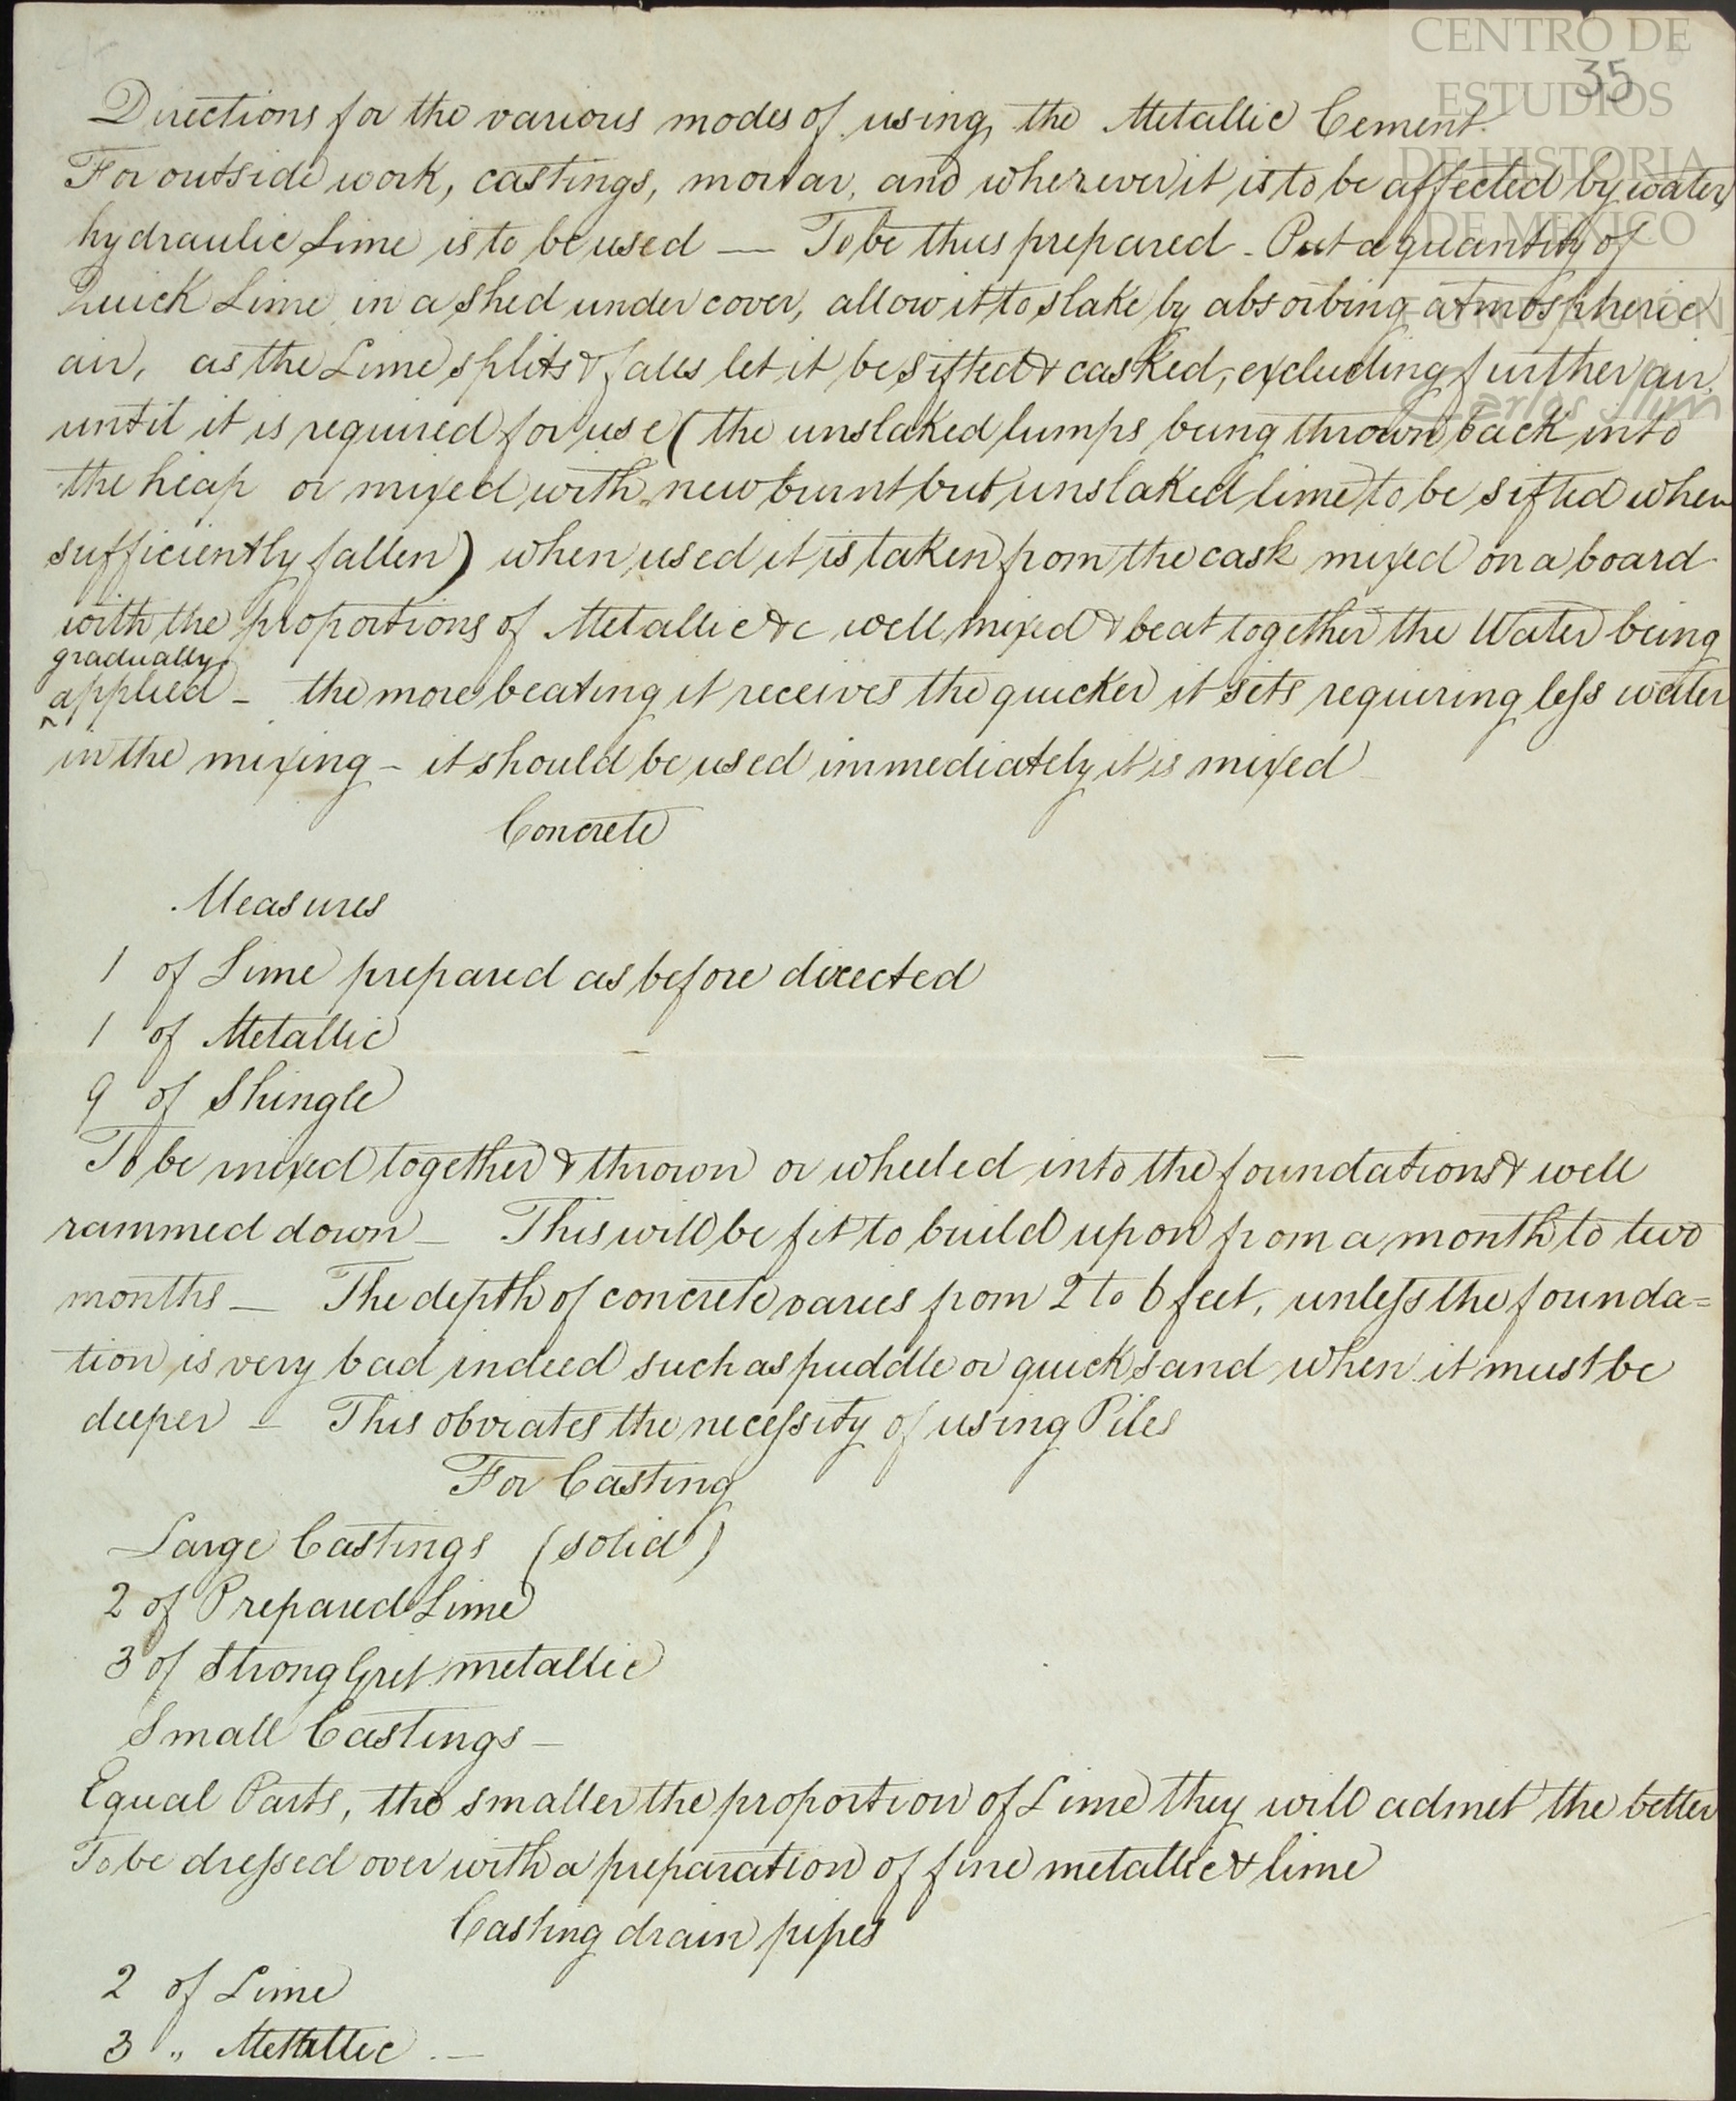 CENTRO DE
ESTUDIOS
DE HISTORIA
DE MEXICO
FUNDACIÓN
Carlos Slim
35
Directions for the various modes of using the Metallic Cement.
For outside work, castings, mortar, and wherever it is to be affected by water,
hydraulic Lime is to be used — To be thus prepared - Put a quantity of
Quick Lime in a shed under cover, allow it to slake by absorbing atmospheric
air, as the Lime splits & falls let it be sifted & casked, excluding further air,
until it is required for use (the unslaked lumps being thrown back into
the heap or mixed with new burnt but unslaked lime to be sifted when
sufficiently fallen) when used it is taken from the cask mixed on a board
with the proportions of Metallic &c well mixed & beat together the Water being
gradually
applied - the more beating it receives the quicker it sets requiring less water
in the mixing - it should be used immediately it is mixed
Concrete
Measures
1 of Lime prepared as before directed
1 of Metallic
9 of Shingle
To be mixed together & thrown or wheeled into the foundations & well
rammed down — This will be fit to build upon from a month to two
months — The depth of concrete varies from 2 to 6 feet, unless the founda=
tion is very bad indeed such as puddle or quick sand when it must be
deeper — This obviates the necessity of using Piles
For Casting
Large Castings (solid)
2 of Prepared Lime
3 of Strong Grit metallic
Small Castings —
Equal Parts, tho smaller the proportion of Lime they will admit the better
To be dressed over with a preparation of fine metallic & lime
Casting drain pipes
2 of Lime
3 " Metallic . —